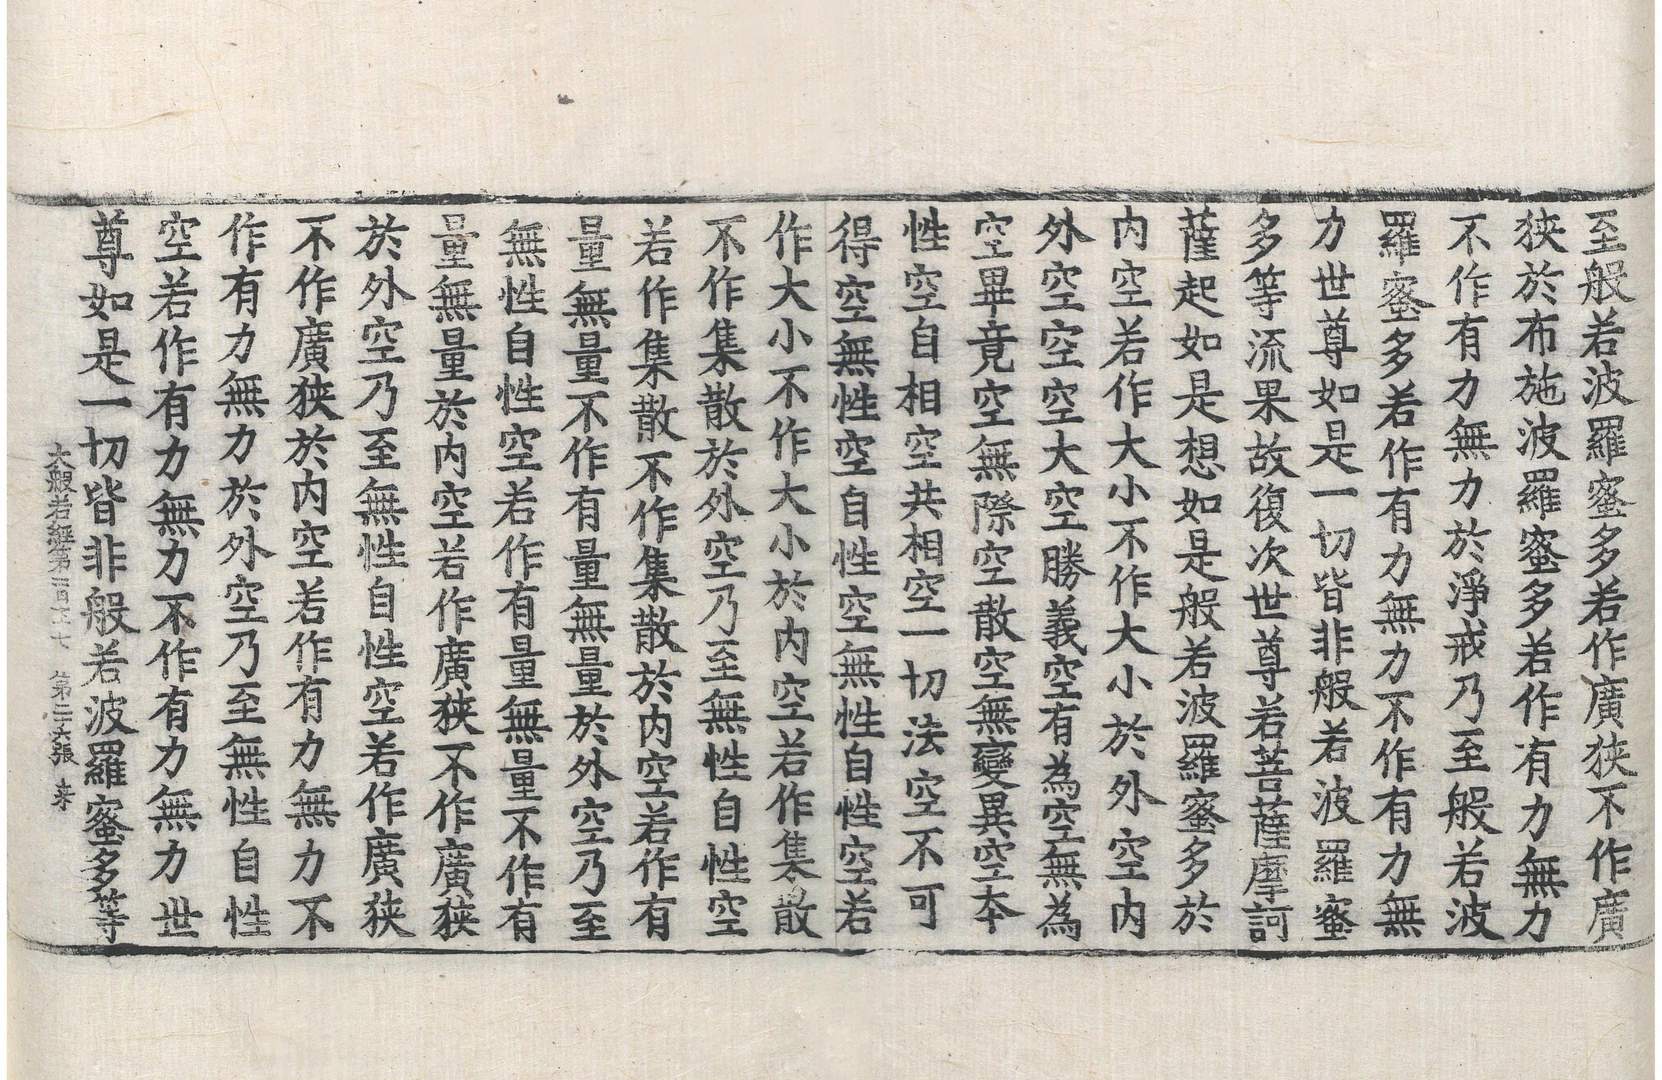 至般若波羅蜜多若作廣狹不作廣
狹於布施波羅蜜多若作有力無力
不作有力無力於淨戒乃至般若波
羅蜜多若作有力無力不作有力無
力世尊如是一切皆非般若波羅蜜
多等流果故復次世尊若菩薩摩訶
薩起如是想如是般若波羅蜜多於
内空若作大小不作大小於外空内
外空空空大空勝義空有為空無為
空畢竟空無際空散空無變異空本
性空自相空共相空一切法空不可
得空無性空自性空無性自性空若
作大小不作大小於内空若作集散
不作集散於外空乃至無性自性空
若作集散不作集散於内空若作有
量無量不作有量無量於外空乃至
無性自性空若作有量無量不作有
量無量於内空若作廣狹不作廣狹
於外空乃至無性自性空若作廣狹
不作廣狹於内空若作有力無力不
作有力無力於外空乃至無性自性
空若作有力無力不作有力無力世
尊如是一切皆非般若波羅蜜多等
大般若經第一百七十七 第二六張 来